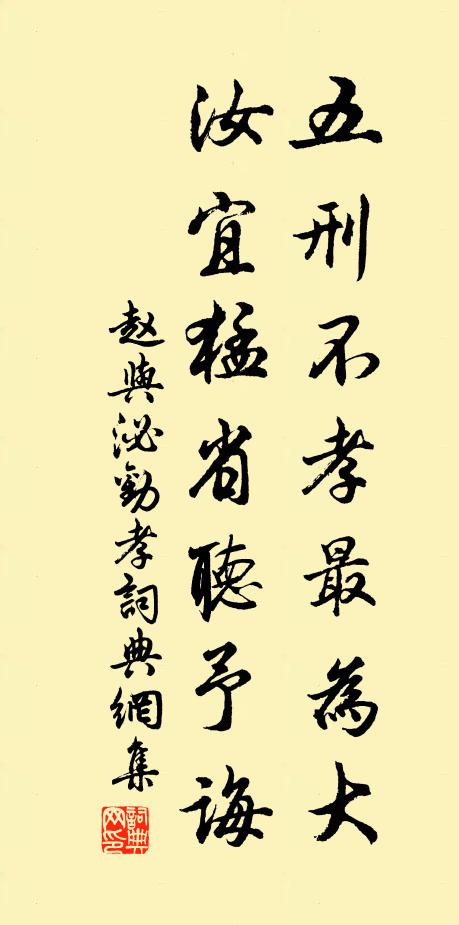 五刑不孝最為大
汝宜猛省聽予誨
赵與泌勸孝詞典網集
詞典網印